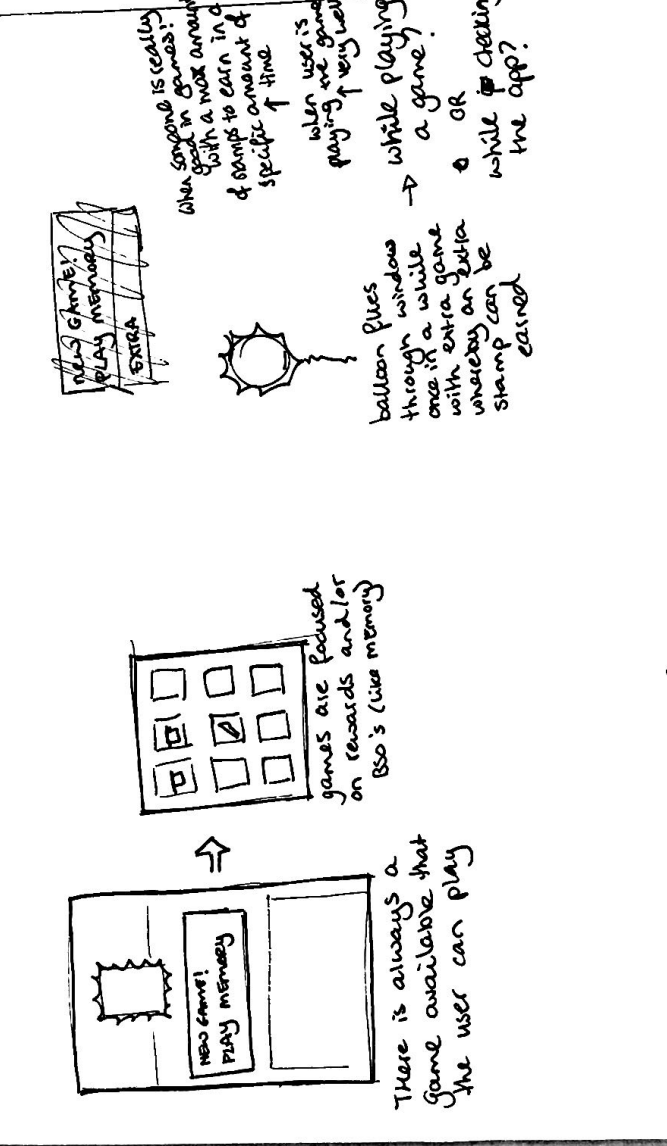 NEW GAME!
PLAY MEMORY
There is always a
game available that
the user can play
games are focused
on rewards and/or
BSO's (like memory)
NEW GAME!
PLAY MEMORY
EXTRA
balloon flies
through window
once in a while
with extra game
whereby an extra
stamp can be
earned
when someone is really
good in games!
with a max amount
of stamps to earn in a
specific amount of
time
when user is
playing the game
very well
while playing
a game?
OR
while checking
the app?